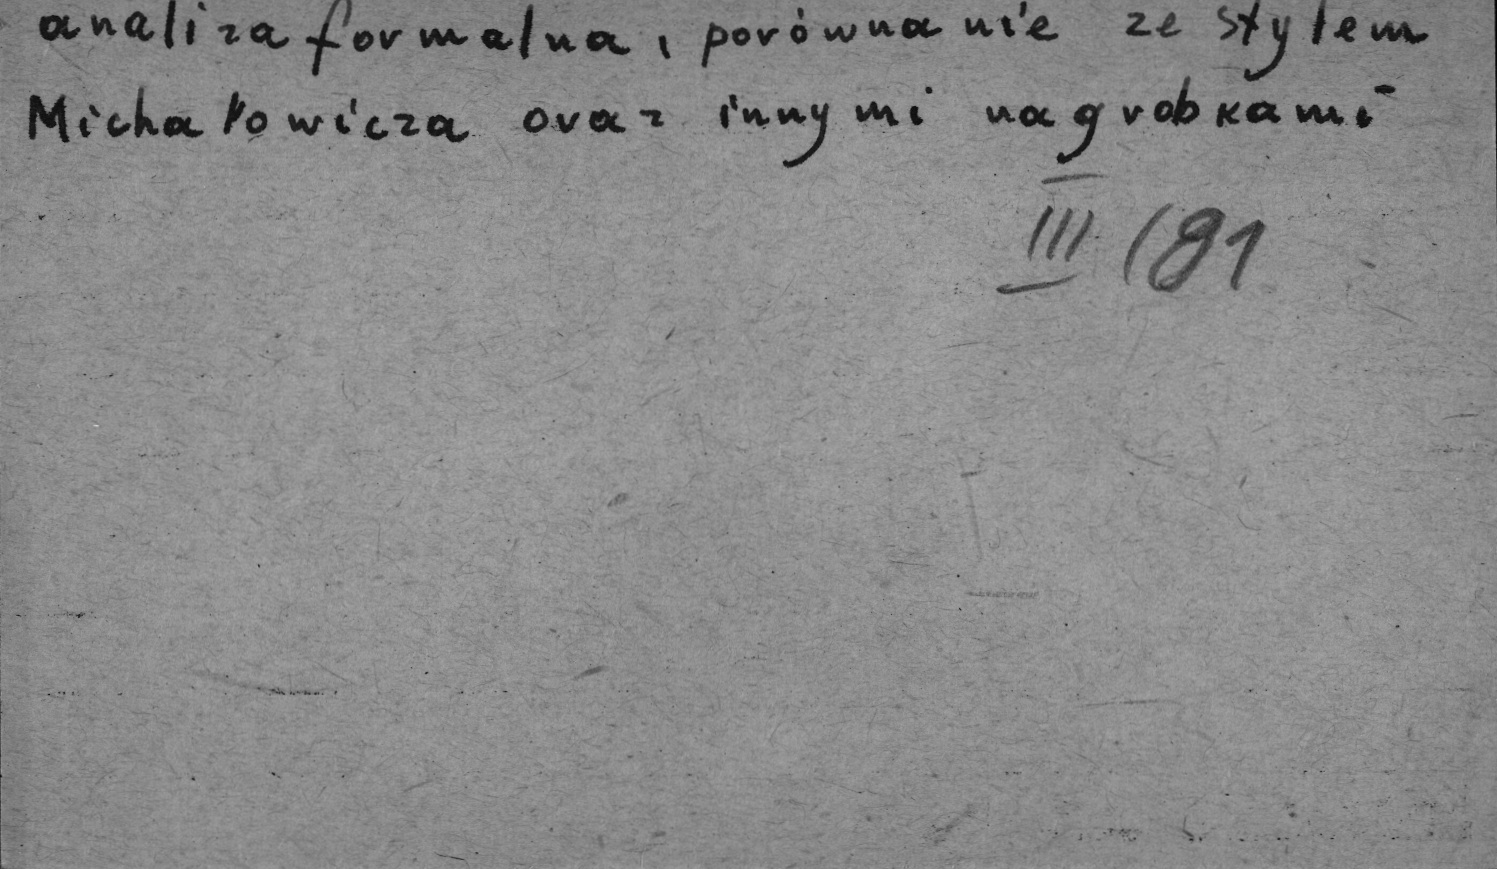 analiza formalna, porównanie ze stylem
Michałowicza oraz innymi nagrobkami
III (81